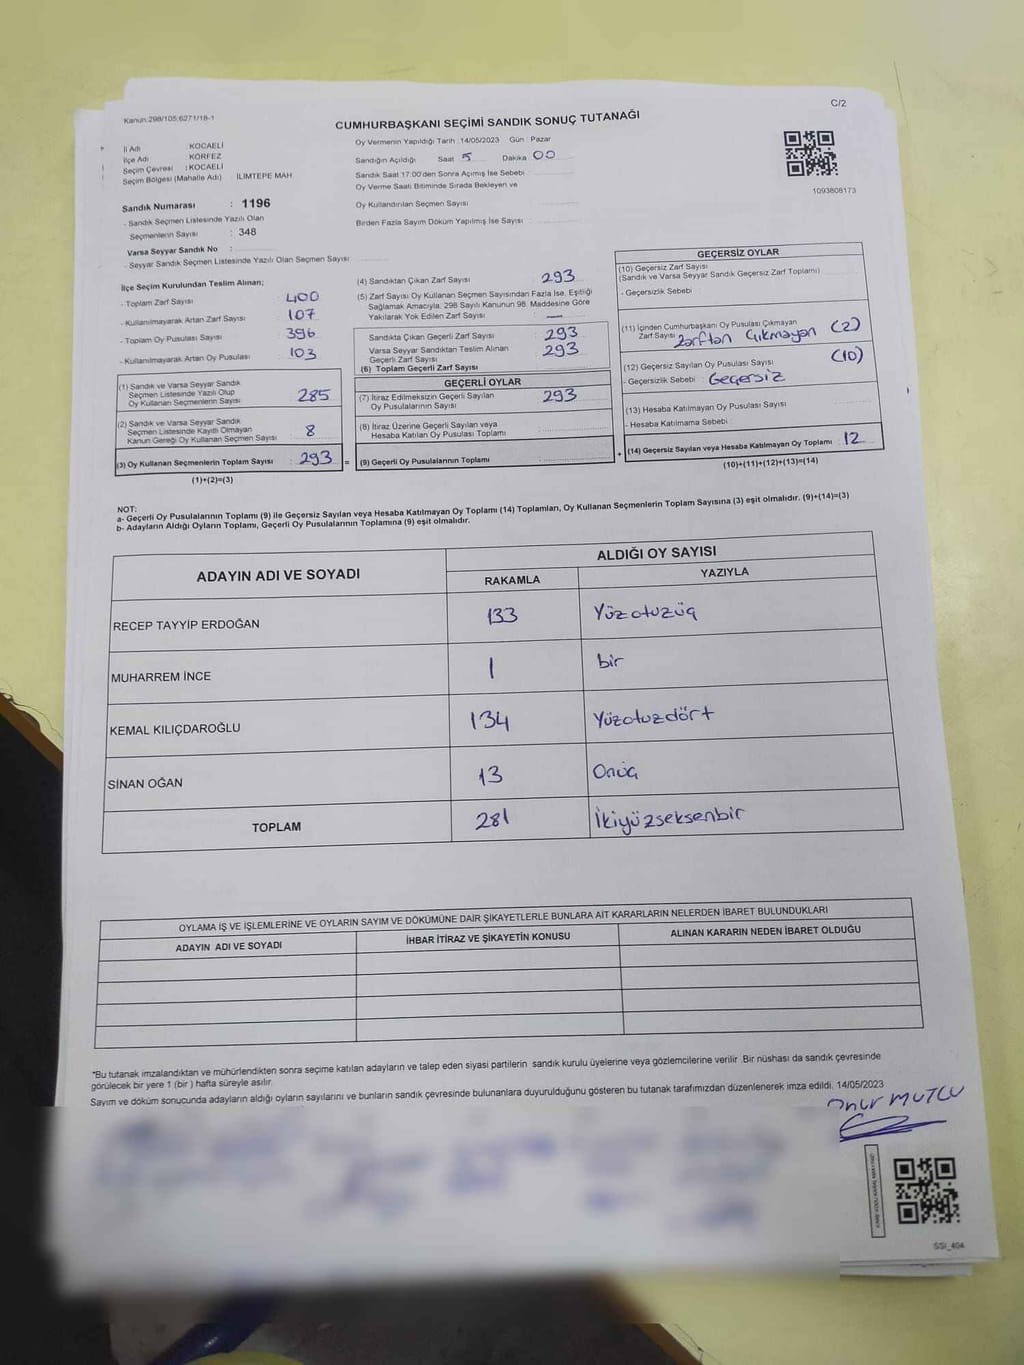 C/2
Kanun:298/105;6271/18-1
CUMHURBAŞKANI SEÇİMİ SANDIK SONUÇ TUTANAĞI
İl Adı : KOCAELİ
İlçe Adı : KÖRFEZ
Seçim Çevresi : KOCAELİ
Seçim Bölgesi (Mahalle Adı) : İLİMTEPE MAH
Oy Vermenin Yapıldığı Tarih :14/05/2023 Gün : Pazar
Sandığın Açıldığı Saat 5 Dakika 00
Sandık Saat 17:00'den Sonra Açılmış İse Sebebi :
Oy Verme Saati Bitiminde Sırada Bekleyen ve
Oy Kullandırılan Seçmen Sayısı :
Birden Fazla Sayım Döküm Yapılmış İse Sayısı :
1093808173
Sandık Numarası : 1196
- Sandık Seçmen Listesinde Yazılı Olan
Seçmenlerin Sayısı : 348
Varsa Seyyar Sandık No :
- Seyyar Sandık Seçmen Listesinde Yazılı Olan Seçmen Sayısı :
İlçe Seçim Kurulundan Teslim Alınan;
- Toplam Zarf Sayısı : 400
- Kullanılmayarak Artan Zarf Sayısı : 107
- Toplam Oy Pusulası Sayısı : 396
- Kullanılmayarak Artan Oy Pusulası : 103
(1) Sandık ve Varsa Seyyar Sandık
Seçmen Listesinde Yazılı Olup
Oy Kullanan Seçmenlerin Sayısı : 285
(2) Sandık ve Varsa Seyyar Sandık
Seçmen Listesinde Kayıtlı Olmayan
Kanun Gereği Oy Kullanan Seçmen Sayısı : 8
(3) Oy Kullanan Seçmenlerin Toplam Sayısı : 293 =
(1)+(2)=(3)
(4) Sandıktan Çıkan Zarf Sayısı : 293
(5) Zarf Sayısı Oy Kullanan Seçmen Sayısından Fazla İse, Eşitliği
Sağlamak Amacıyla, 298 Sayılı Kanunun 98. Maddesine Göre
Yakılarak Yok Edilen Zarf Sayısı : —
Sandıkta Çıkan Geçerli Zarf Sayısı : 293
Varsa Seyyar Sandıktan Teslim Alınan
Geçerli Zarf Sayısı : 293
(6) Toplam Geçerli Zarf Sayısı
GEÇERLİ OYLAR
(7) İtiraz Edilmeksizin Geçerli Sayılan
Oy Pusulalarının Sayısı : 293
(8) İtiraz Üzerine Geçerli Sayılan veya
Hesaba Katılan Oy Pusulası Toplamı :
(9) Geçerli Oy Pusulalarının Toplamı : +
GEÇERSİZ OYLAR
(10) Geçersiz Zarf Sayısı
(Sandık ve Varsa Seyyar Sandık Geçersiz Zarf Toplamı)
- Geçersizlik Sebebi
(11) İçinden Cumhurbaşkanı Oy Pusulası Çıkmayan
Zarf Sayısı Zarftan Çıkmayan (2)
(12) Geçersiz Sayılan Oy Pusulası Sayısı (10)
- Geçersizlik Sebebi : Geçersiz
(13) Hesaba Katılmayan Oy Pusulası Sayısı
- Hesaba Katılmama Sebebi
(14) Geçersiz Sayılan veya Hesaba Katılmayan Oy Toplamı : 12
(10)+(11)+(12)+(13)=(14)
NOT:
a- Geçerli Oy Pusulalarının Toplamı (9) ile Geçersiz Sayılan veya Hesaba Katılmayan Oy Toplamı (14) Toplamları, Oy Kullanan Seçmenlerin Toplam Sayısına (3) eşit olmalıdır. (9)+(14)=(3)
b- Adayların Aldığı Oyların Toplamı, Geçerli Oy Pusulalarının Toplamına (9) eşit olmalıdır.
ADAYIN ADI VE SOYADI
ALDIĞI OY SAYISI
RAKAMLA YAZIYLA
RECEP TAYYİP ERDOĞAN 133 Yüzotuzüç
MUHARREM İNCE 1 bir
KEMAL KILIÇDAROĞLU 134 Yüzotuzdört
SİNAN OĞAN 13 Onüç
TOPLAM 281 İkiyüzseksenbir
OYLAMA İŞ VE İŞLEMLERİNE VE OYLARIN SAYIM VE DÖKÜMÜNE DAİR ŞİKAYETLERLE BUNLARA AİT KARARLARIN NELERDEN İBARET BULUNDUKLARI
ADAYIN ADI VE SOYADI İHBAR İTİRAZ VE ŞİKAYETİN KONUSU ALINAN KARARIN NEDEN İBARET OLDUĞU
*Bu tutanak imzalandıktan ve mühürlendikten sonra seçime katılan adayların ve talep eden siyasi partilerin sandık kurulu üyelerine veya gözlemcilerine verilir. Bir nüshası da sandık çevresinde
görülecek bir yere 1 (bir ) hafta süreyle asılır.
Sayım ve döküm sonucunda adayların aldığı oyların sayılarını ve bunların sandık çevresinde bulunanlara duyurulduğunu gösteren bu tutanak tarafımızdan düzenlenerek imza edildi. 14/05/2023
Onur MUTLU
SSI_404